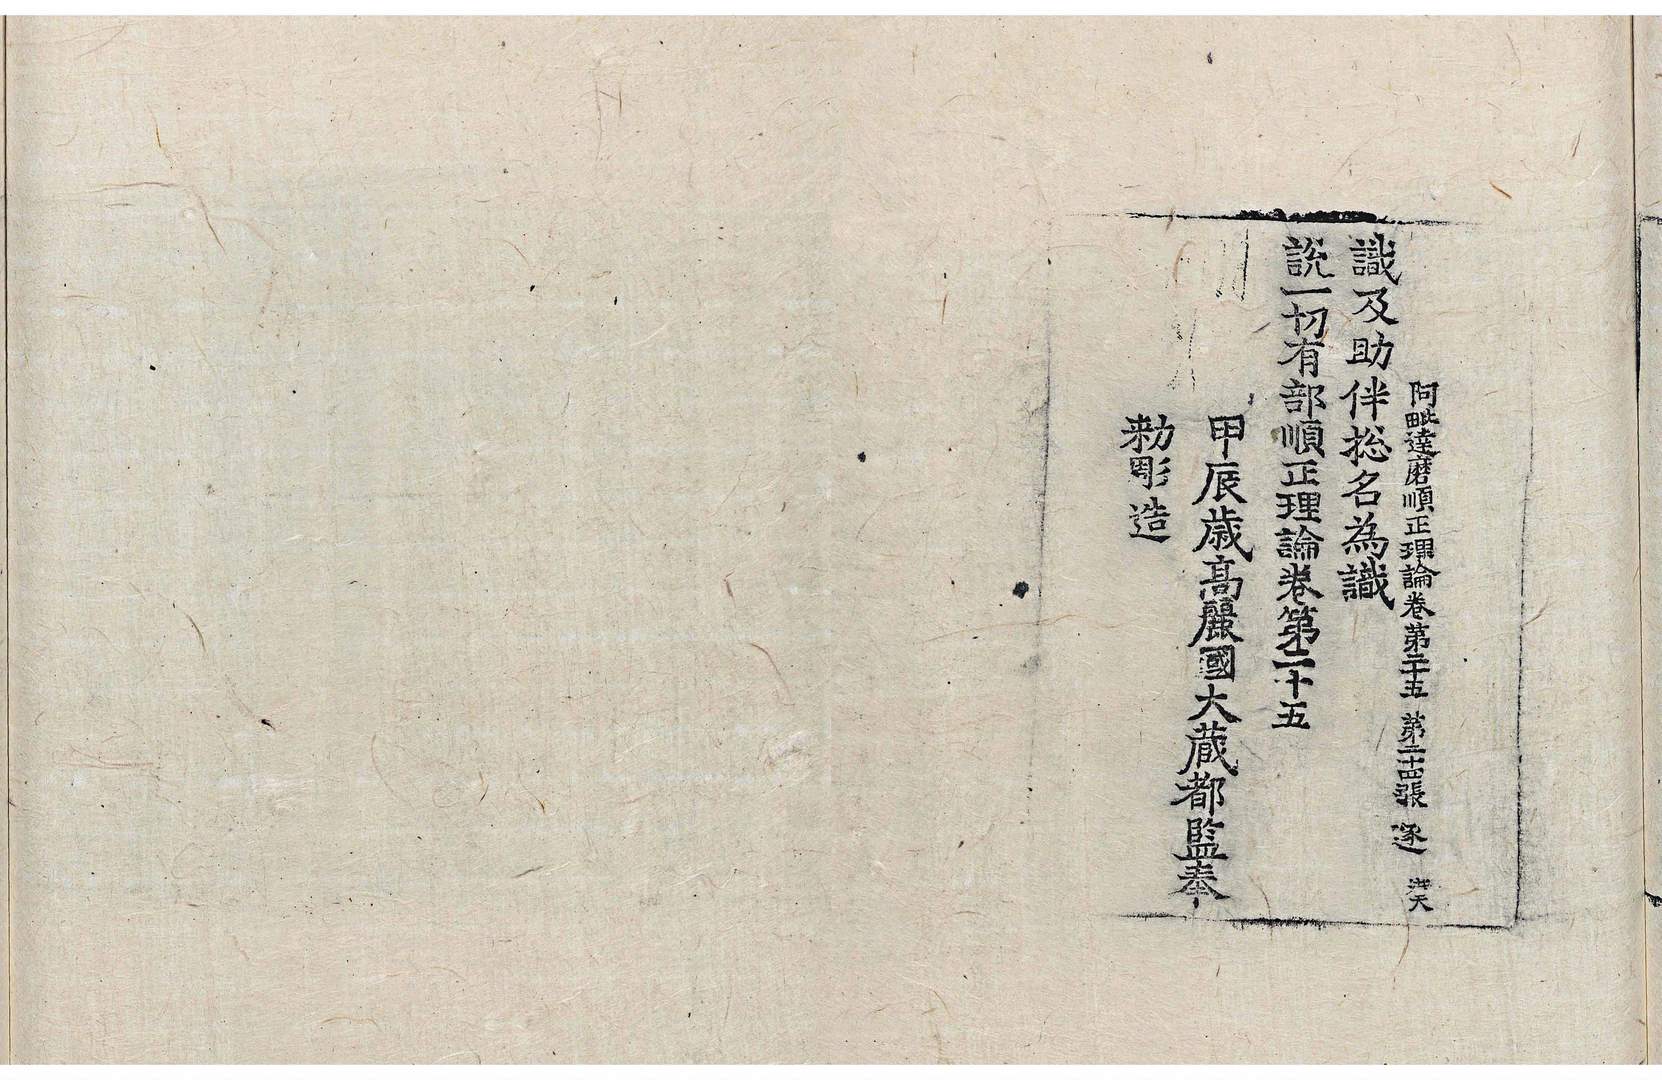 阿毗達磨順正理論卷第二十五 第二十四張 逐
識及助伴捴名為識
說一切有部順正理論卷第二十五
甲辰歲高麗國大藏都監奉
勑彫造